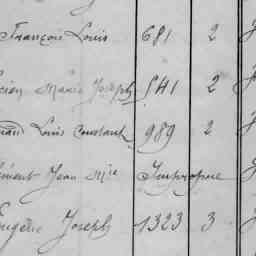 François Louis 681 2
Marie Joseph 541 2
Louis Constant 989 2
Jean Mie Impropre
Eugène Joseph 1323 3